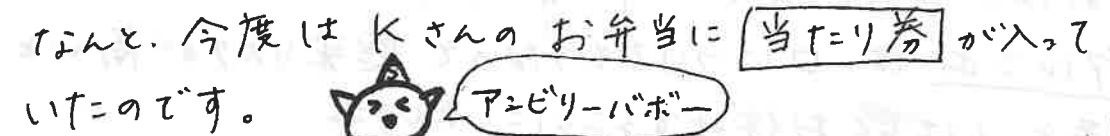 なんと、今度は Kさんの お弁当に 当たり券 が入って
いたのです。
アンビリーバボー